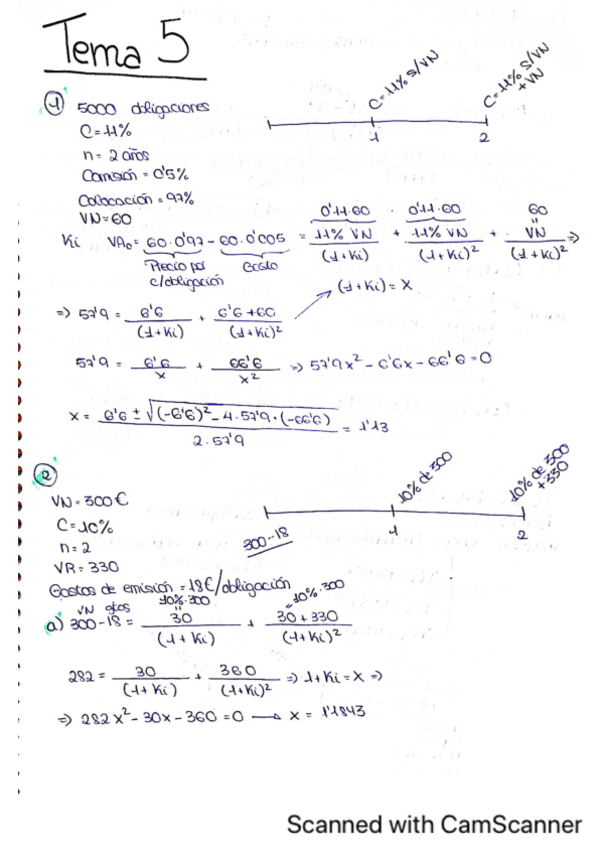 Tema 5
C=11% S/VN
C=11% S/VN
+ VN
1
2
① 5000 obligaciones
C=11%
n= 2 años
Comisión = 0'5%
Colocación = 97%
VN=60
0'11·60
0'11·60
60
Ki VA₀= 60·0'97 - 60·0'005 = 11% VN/(1+Ki) + 11% VN/(1+Ki)² + VN/(1+Ki)² ⇒
Precio por
c/obligación
Gasto
(1+Ki) = X
⇒ 57'9 = 6'6/(1+Ki) + 6'6+60/(1+Ki)²
57'9 = 6'6/x + 66'6/x² ⇒ 57'9x² - 6'6x - 66'6 = 0
x = 6'6 ± √((-6'6)² - 4·57'9·(-66'6))/2·57'9 = 1'13
②
VN = 300€
C= 10%
n= 2
VR= 330
10% de 300
10% de 300
+330
300-18
1
2
Gastos de emisión = 18€/obligación
VN gtos
10%·300
10%·300
a) 300-18 = 30/(1+Ki) + 30+330/(1+Ki)²
282 = 30/(1+Ki) + 360/(1+Ki)² ⇒ 1+Ki = x ⇒
⇒ 282x² - 30x - 360 = 0 → x = 1'1843
Scanned with CamScanner